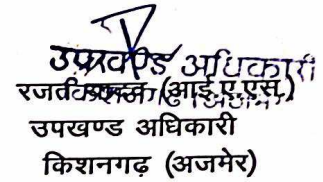 उपखण्ड अधिकारी
(आई.ए.एस.)
उपखण्ड अधिकारी
किशनगढ़ (अजमेर)